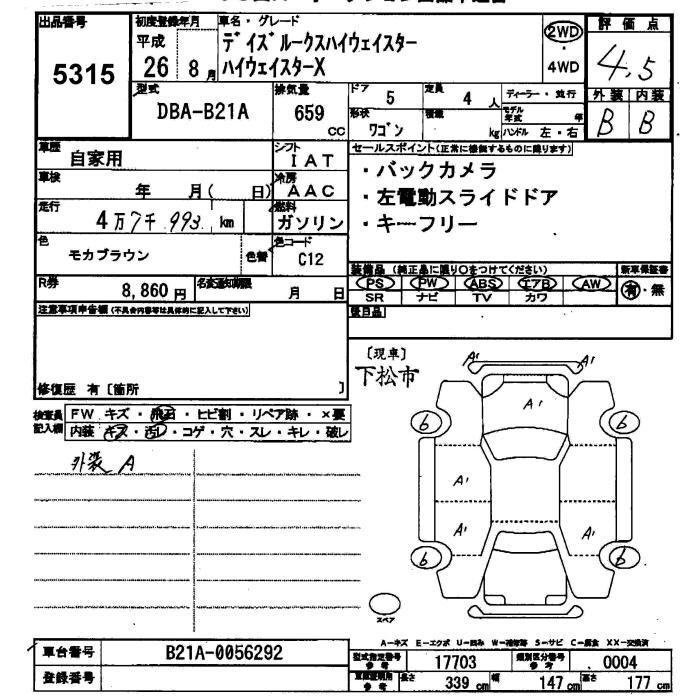 出品番号 初度登録年月 車名・グレード 評価点
5315 平成 26 8月 デイズルークスハイウェイスター 2WD・4WD 4.5
ハイウェイスターX
型式 排気量 ドア 定員 ディーラー・並行 外装 内装
DBA-B21A 659 CC 5 4人 モデル年式 年 B B
形状 積載 ワゴン kg ハンドル 左・右
車歴 シフト セールスポイント(正常に稼働するものに限ります)
自家用 IAT ・バックカメラ
車検 冷房
年 月( 日) AAC ・左電動スライドドア
走行 燃料
4万7千993 km ガソリン ・キーフリー
色 色替 色コード
モカブラウン C12
R券 名変通知期限 装備品(純正品に限り○をつけてください) 新車保証書
8,860円 月 日 PS PW ABS エアB AW 有・無
SR ナビ TV カワ
注意事項申告欄(不具合内容等は具体的に記入して下さい) 後日品
修復歴 有〔箇所 〕
〔現車〕
下松市
検査員記入欄 FW キズ・飛石・ヒビ割・リペア跡・×要
内装 キズ・汚レ・コゲ・穴・スレ・キレ・破レ
外装 A
A' A'
A'
6 6
A'
A' A'
6 6
スペア
A-キズ E-エクボ U-凹み W-補修跡 S-サビ C-腐食 XX-交換済
車台番号 B21A-0056292
登録番号
型式指定番号 参考 17703 類別区分番号 参考 0004
長さ 339 cm 幅 147 cm 高さ 177 cm